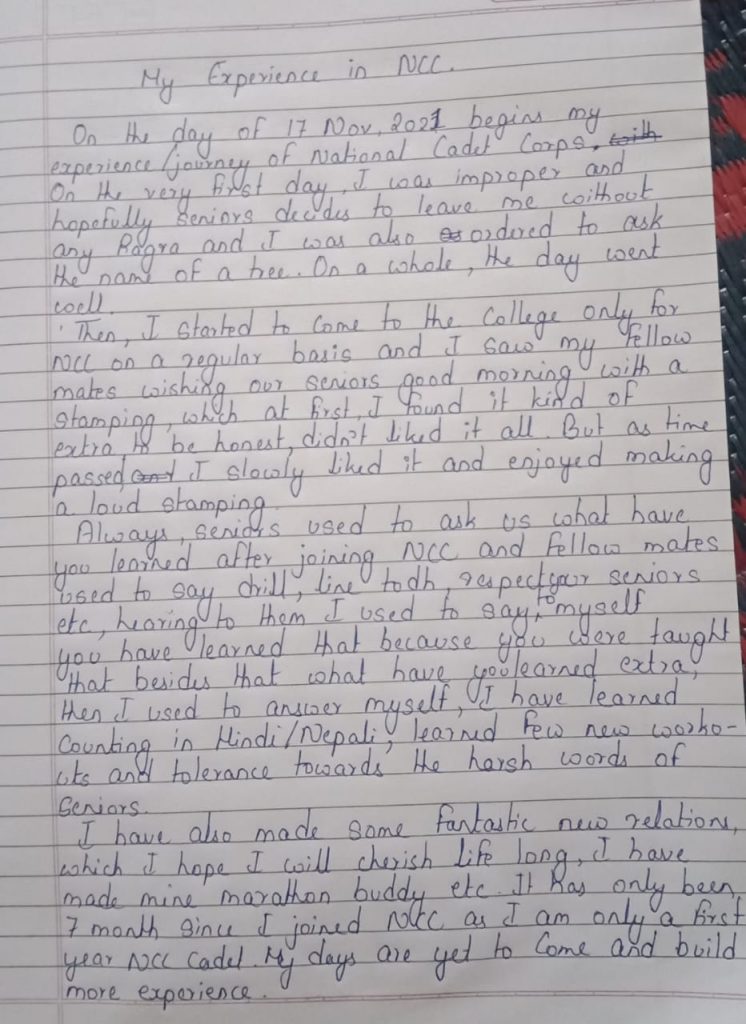 My Experience in NCC.
On the day of 17 Nov, 2021 begins my
experience/journey of National Cadet Corps. with
On the very first day, I was improper and
hopefully seniors decides to leave me without
any Ragra and I was also as ordered to ask
the name of a tree. On a whole, the day went
well.
Then, I started to come to the College only for
NCC on a regular basis and I saw my fellow
mates wishing our seniors good morning with a
stamping, which at first, I found it kind of
extra, to be honest, didn't liked it all. But as time
passed and I slowly liked it and enjoyed making
a loud stamping.
Always, seniors used to ask us what have
you learned after joining NCC and fellow mates
used to say drill, line todh, respect your seniors
etc, hearing to them I used to say, to myself
you have learned that because you were taught
that besides that what have you learned extra,
then I used to answer myself, I have learned
Counting in Hindi/Nepali, learned few new worko-
uts and tolerance towards the harsh words of
Seniors.
I have also made some fantastic new relations,
which I hope I will cherish life long, I have
made mine marathon buddy etc. It has only been
7 month since I joined NCC as I am only a first
year NCC Cadet. My days are yet to Come and build
more experience.